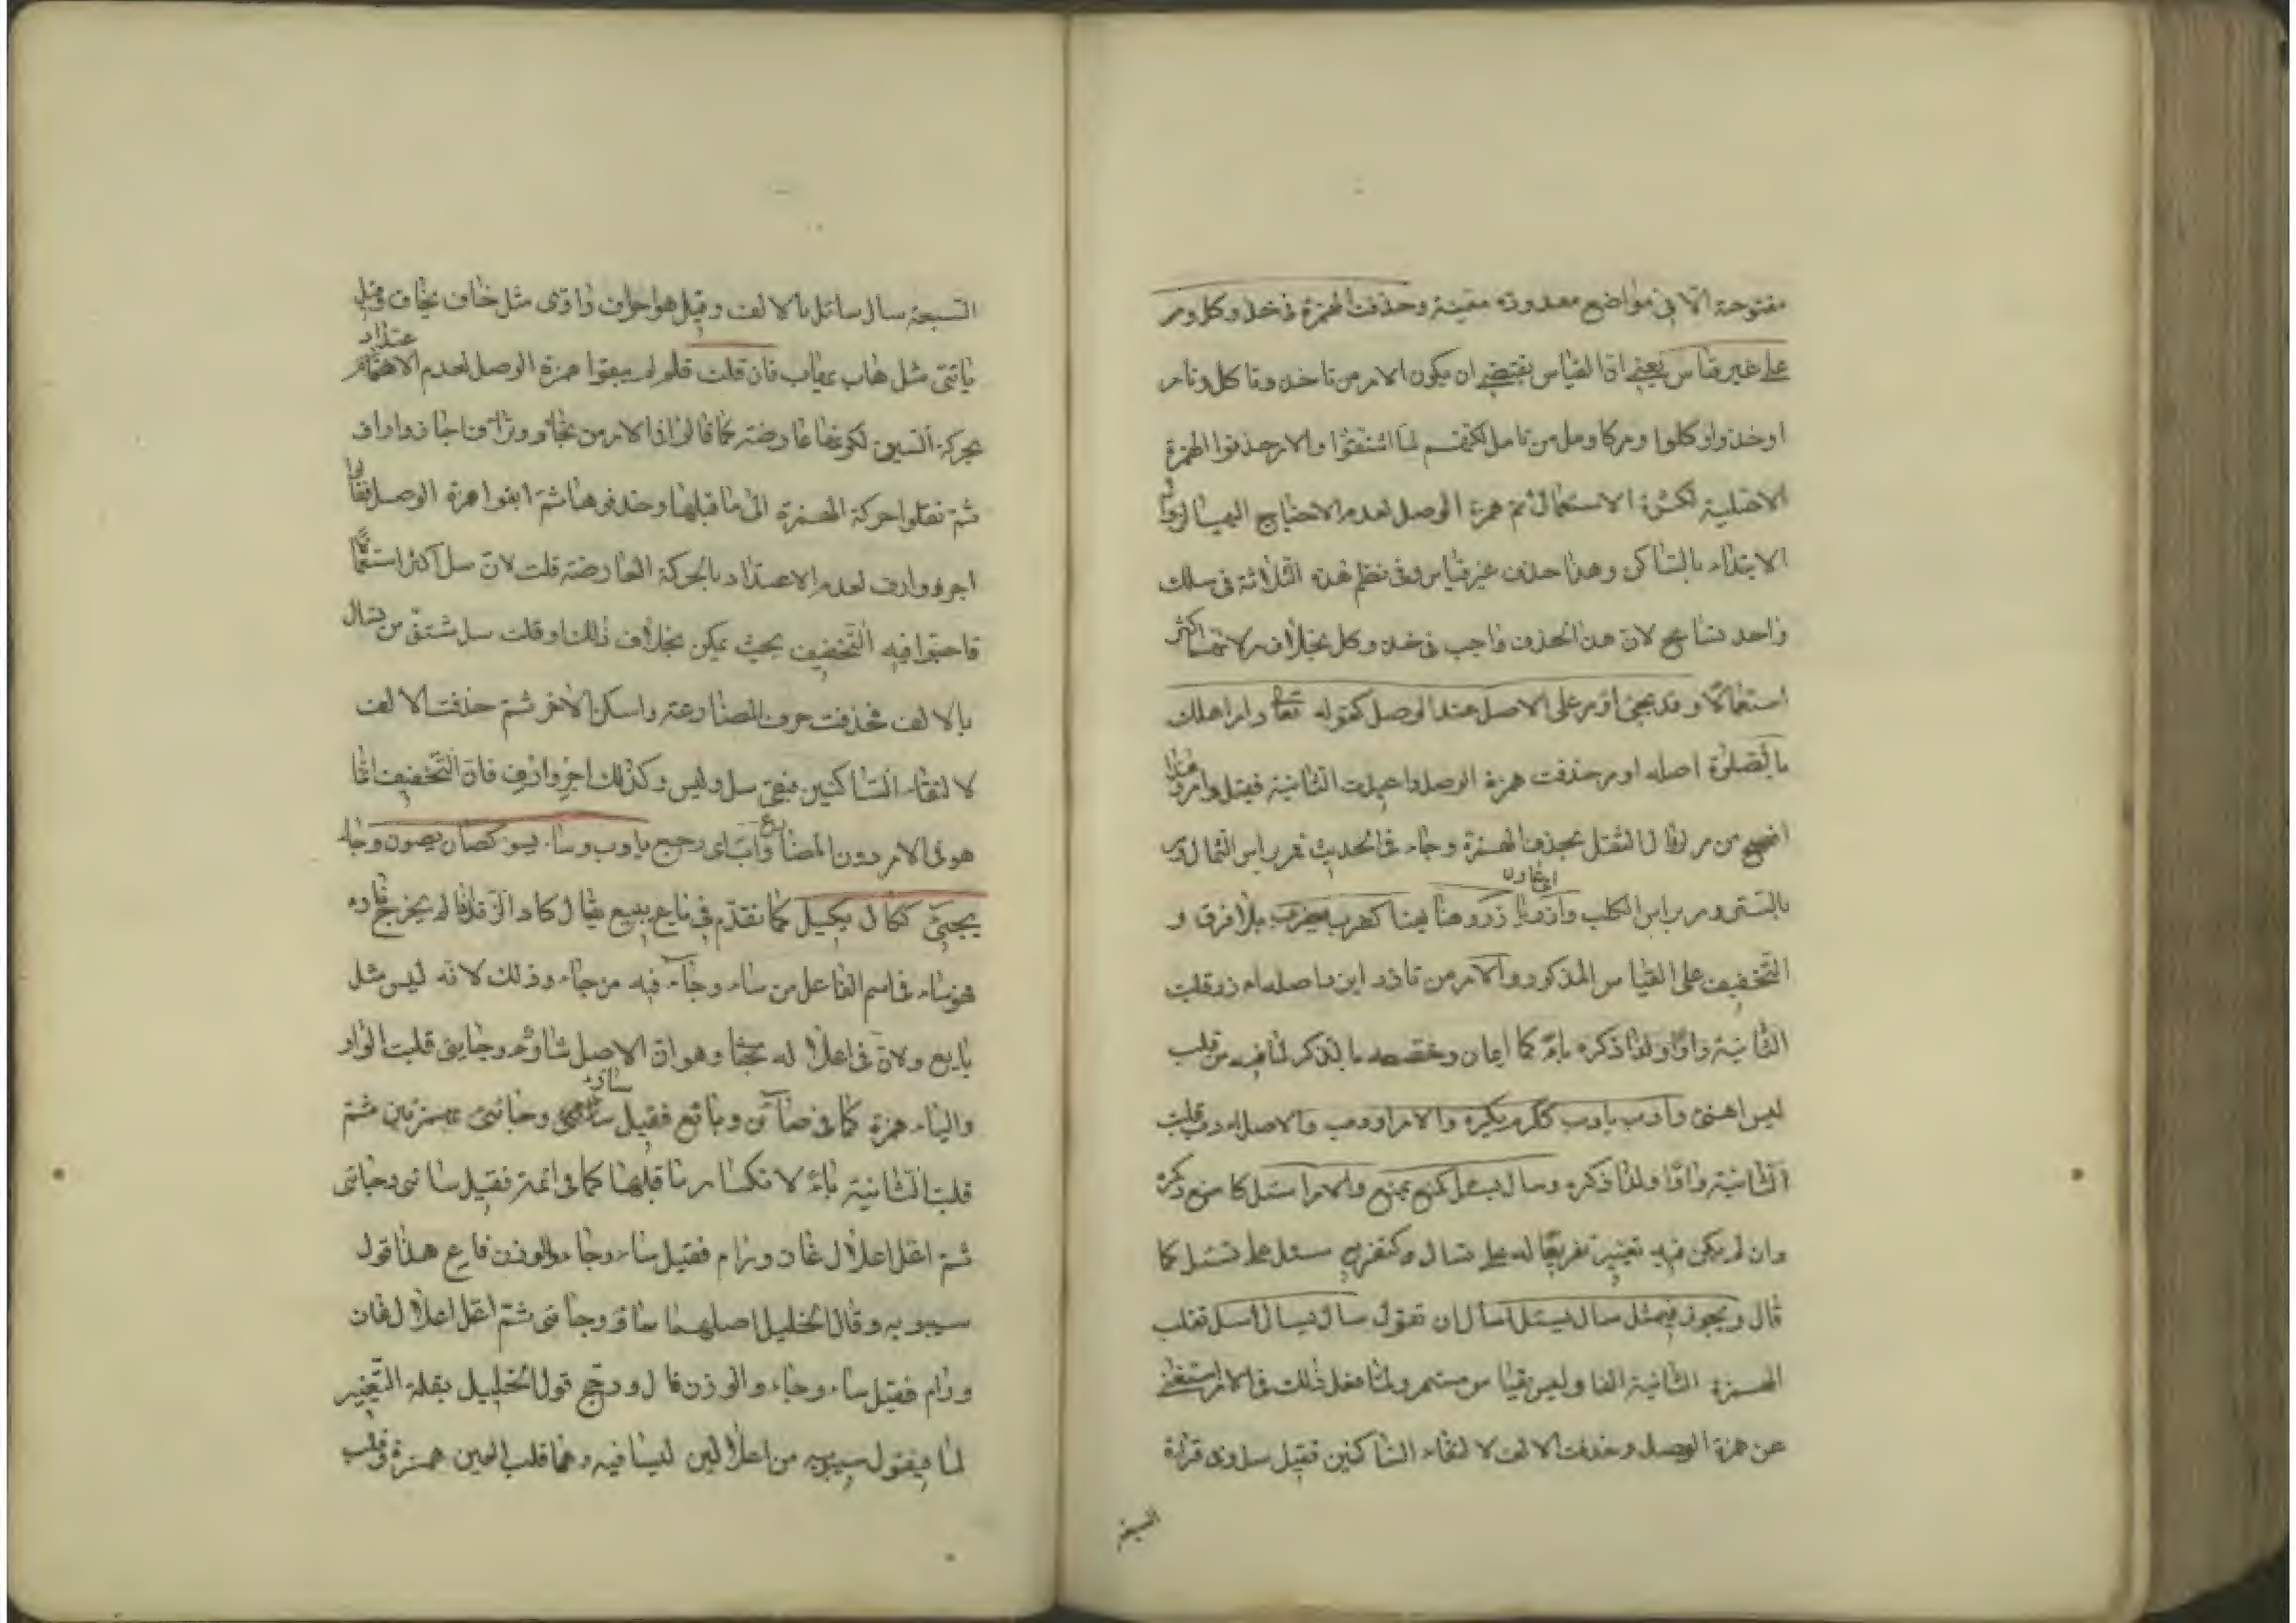 مفتوحة الا في مواضع معدودة معينة وحذفت الهمزة في خذ وكل ومر
على غير قياس يعني ان القياس يقتضي ان يكون الامر من تاخذ وتاكل وتامر
اوخذ واوكلوا ومركا ومل من تامل لكنهم لما اشتقوا والامر حذفوا الهمزة
الاصلية لكثرة الاستعمال ثم همزة الوصل لعدم الاحتياج اليها لزوال
الابتداء بالساكن وهذا حذف غير قياس وفي نظم هذه الثلاثة في سلك
واحد تسامح لان هذا الحذف واجب في خذ وكل بخلاف مر لانهما اكثر
استعمالا وقد يجئ اومر على الاصل عند الوصل كقوله تعالى وامر اهلك
بالصلوة اصله اومر حذفت همزة الوصل واعيدت الثانية فقيل وامر وهذا
افصح من مر لزوال الثقل بحذف الهمزة وجاء في الحديث فمر براس التمثال ومر
بالستر ومر براس الكلب وازر يازر وهنا يهنا كضرب يضرب بلا فرق و
التخفيف على القياس المذكور والامر من تازر ايزر اصله اءزر قلبت
الثانية ياء ولذا ذكره كما ايمان وخصصه بالذكر لما فيه من قلب
ليس اهنئ وادب يادب ككرم يكرم والامر اودب والاصل اءدب قلبت
الثانية واوا ولذا ذكره وسال يسئل كمنع يمنع والامر اسئل كامنع ذكره
وان لم يكن فيه تغيير تفريعا له على تسال و سئل على تسئل كما
قال ويجوز في مثل سال يسئل اسال ان تقول سال يسال اسل تقلب
الهمزة الثانية الفا وليس بقياس مستمر ولما فعل ذلك في الامر استغنى
عن همزة الوصل وحذفت الالف لالتقاء الساكنين فقيل سل وفي قراءة
السبعة
السبعة سال سائل بالالف وقيل هو اجوف واوى مثل خاف يخاف وقيل
يائى مثل هاب يهاب فان قلت فلم لم يبقوا همزة الوصل لعدم الاعتداد
بحركة السين لكونها عارضة كما قالوا في الامر من تجار وتراف اجار واراف
ثم نقلوا حركة الهمزة الى ما قبلها وحذفوها ثم ابقوا همزة الوصل فقالوا
اجر وارف لعدم الاعتداد بالحركة العارضة قلت لان سل اكثر استعمالا
فاحبوا فيه التخفيف بحيث يمكن بخلاف ذلك او قلت سل مشتق من تسال
بالالف فحذفت حرف المضارعة واسكن الاخر ثم حذفت الالف
لالتقاء الساكنين فبقى سل وليس وكذلك اجر وارف فان التخفيف انما
هو في الامر دون المضارع واب اى رجع ياوب وساء يسوء كصان يصون وجاء
يجئ ككال يكيل كما تقدم في باع يبيع يقال كاد الزند اذا لم يخرج ناره
فهو ساء في اسم الفاعل من ساء وجاء فيه من جاء وذلك لانه ليس مثل
بايع ولان في اعلاله بحثا وهو ان الاصل ساوء وجايئ قلبت الواو
والياء همزة كما في صائن وبائع فقيل سائئ وجائئ بهمزتين ثم
قلبت الثانية ياء لانكسار ما قبلها كما في ائمة فقيل سائى وجائى
ثم اعل اعلال غاز ورام فقيل ساء وجاء والوزن فاع هذا قول
سيبويه وقال الخليل اصلهما ساوء وجائى ثم اعل اعلال غاز
ورام فقيل ساء وجاء والوزن فال ورجح قول الخليل بقلة التغيير
لما في قول سيبويه من اعلالين ليسا فيه وهما قلب العين همزة وقلب